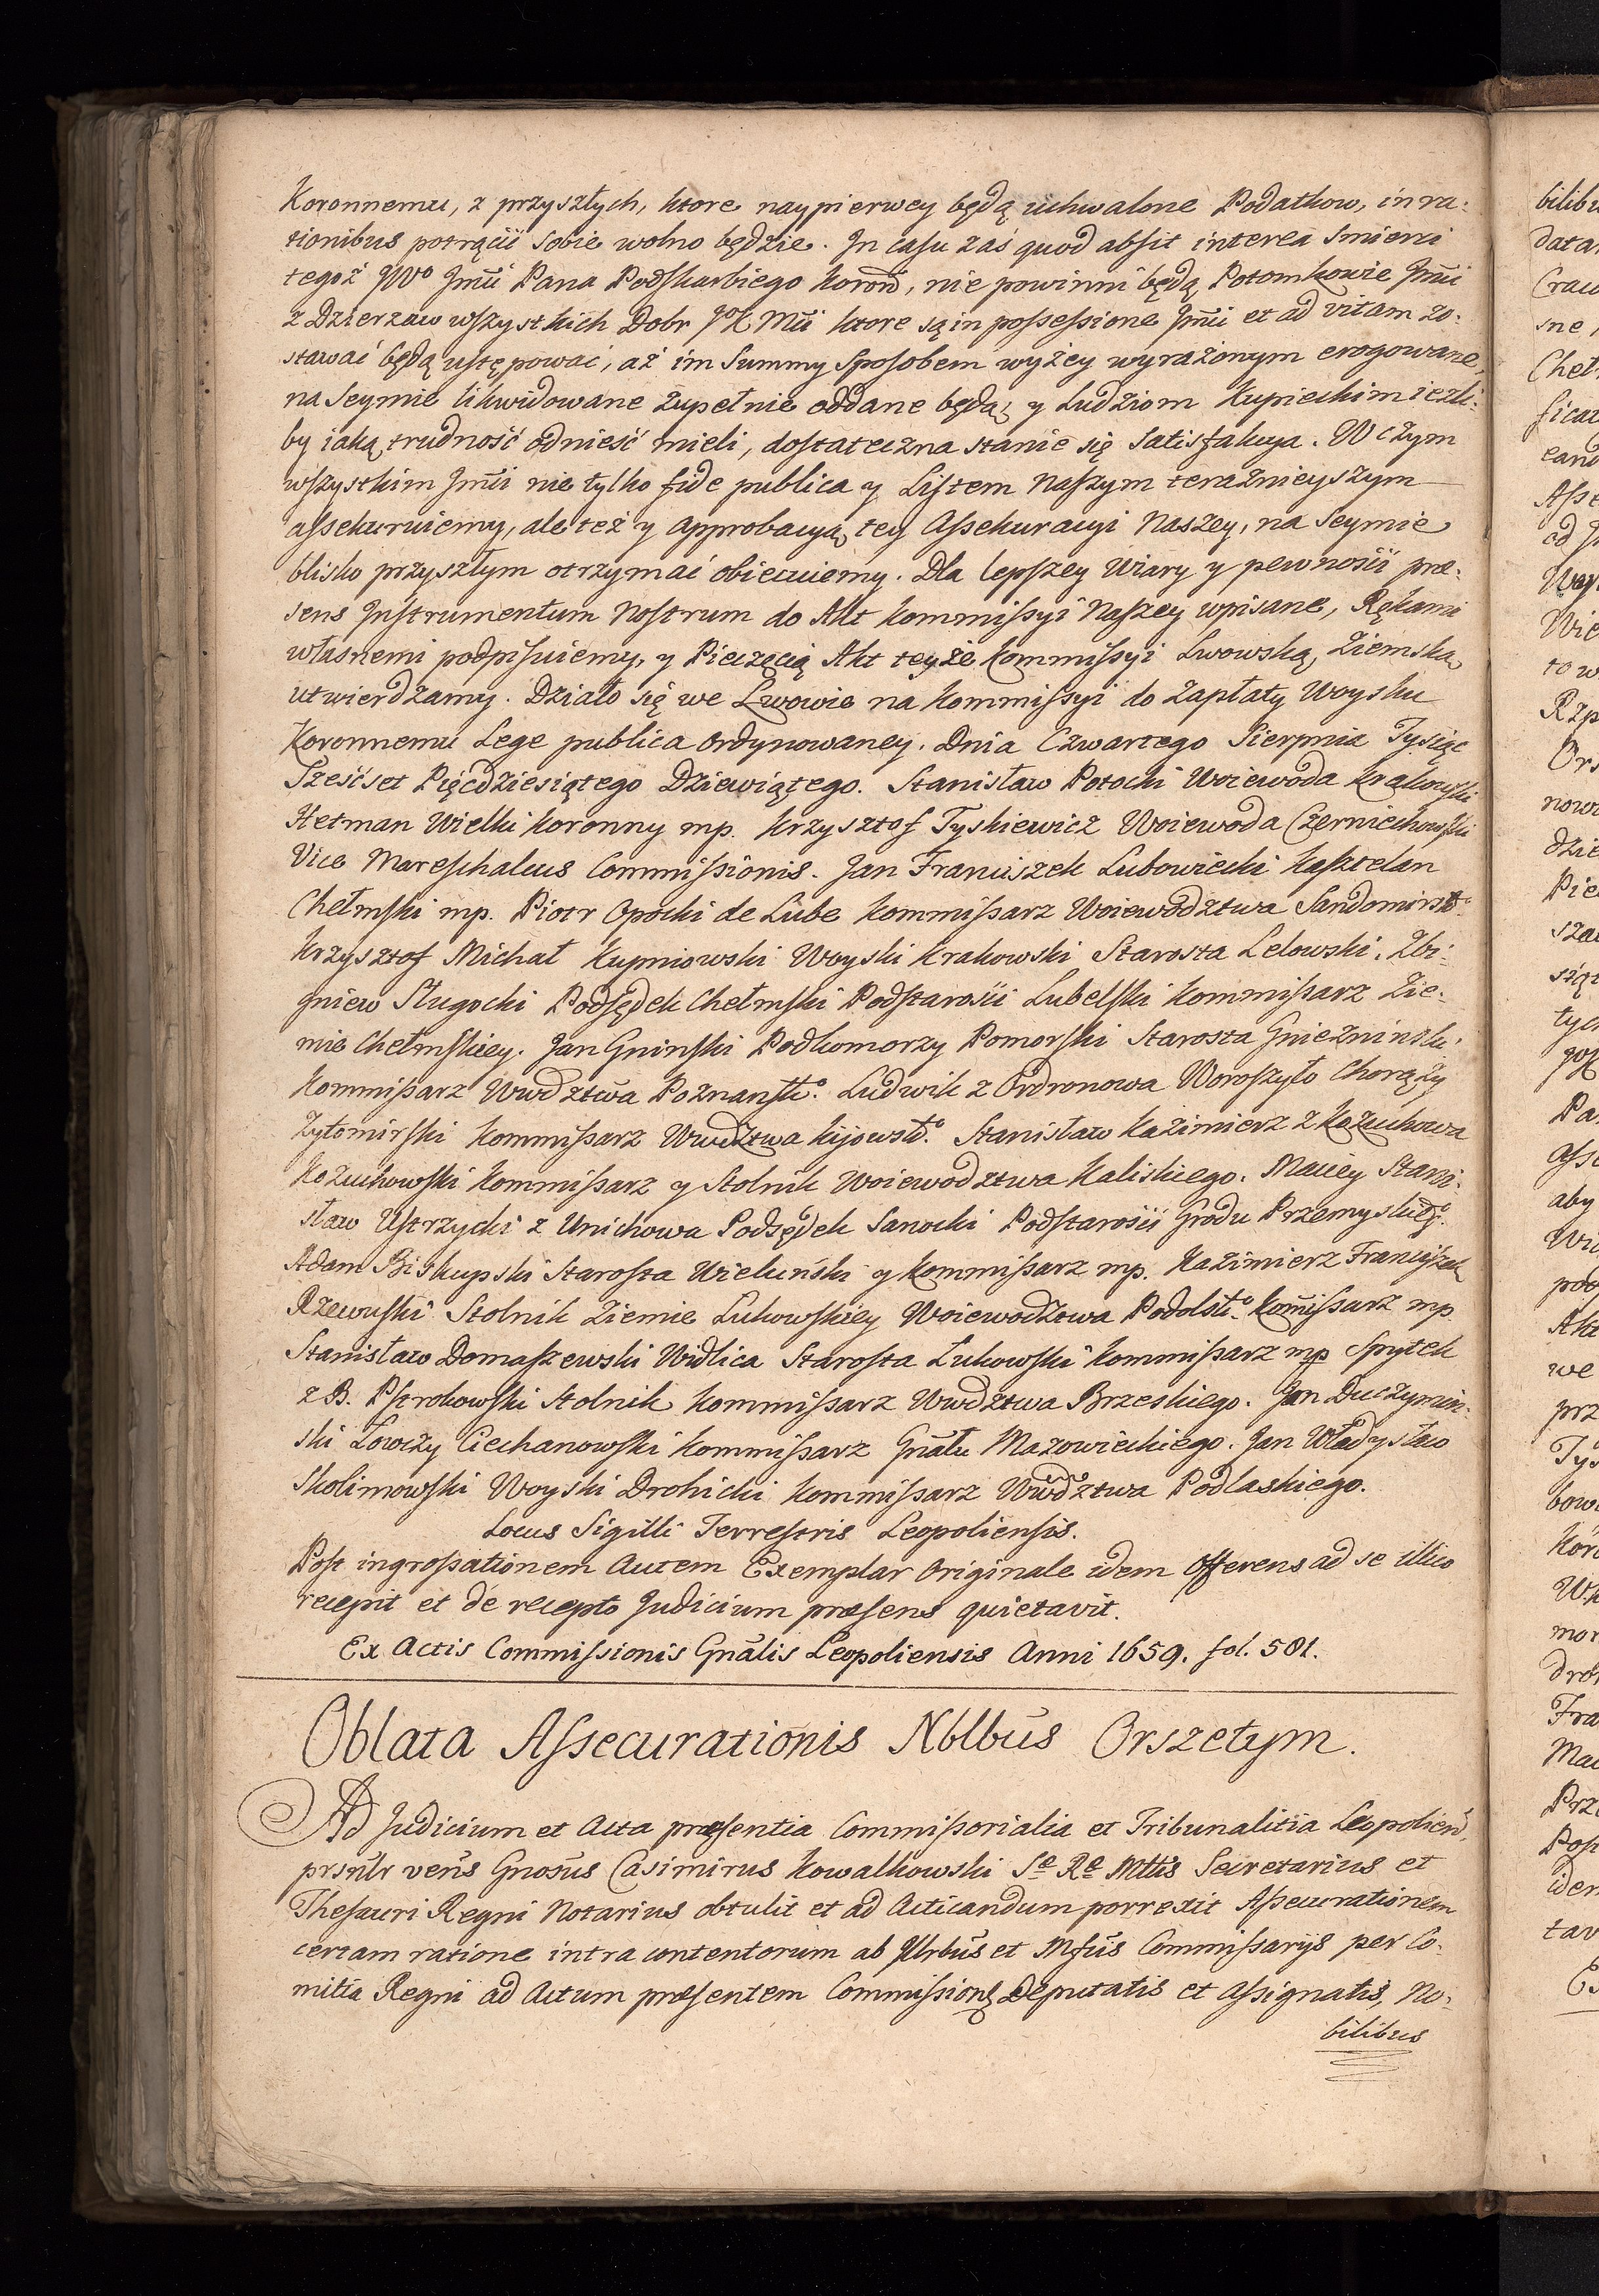 Koronnemu, z przyszłych, ktore naypierwey będą uchwalone Podatkow, in ra-
tionibus potrącić sobie wolno będzie. In casu zaś quod absit interea Smierci
tegoż JWo Jmći Pana Podskarbiego Koron, nie powinni będą Potomkowie Jmći
z Dzierzaw wszystkich Dobr JKMći ktore są in possessione Jmći et ad vitam zo-
stawać będą ustępować, aż im Summy sposobem wyżey wyrażonym erogowane,
na Seymie likwidowane zupełnie oddane będą, y Ludziom Kupieckim iezli-
by iaką trudność odnieść mieli, dostateczna stanie się Satisfakcya. W czym
wszystkim Jmći nie tylko fide publica y Listem Naszym teraznieyszym
assekuruiemy, ale też y approbacyą tey Assekuracyi Naszey, na Seymie
blisko przyszłym otrzymać obiecuiemy. Dla lepszey Wiary y pewności præ-
sens Instrumentum Nostrum do Akt Kommissyi Naszey wpisane, Rękami
własnemi podpisuiemy, y Pieczęcią Akt teyże Kommissyi Lwowską, Ziemską
utwierdzamy. Działo się we Lwowie na Kommissyi do Zapłaty Woysku
Koronnemu Lege publica Ordynowaney. Dnia Czwartego Sierpnia Tysiąc
Sześćset Pięćdziesiątego Dziewiątego. Stanisław Potocki Woiewoda Krakowski
Hetman Wielki Koronny mp. Krzysztof Tyskiewicz Woiewoda Czerniechowski
Vice Mareschalcus Commissionis. Jan Franciszek Lubowiecki Kasztelan
Chełmski mp. Piotr Opocki de Lube Kommissarz Woiewodztwa Sandomirsko
Krzysztof Michał Kupniowski Woyski Krakowski Starosta Lelowski. Zbi-
gniew Sługocki Podsędek Chełmski Podstarości Lubelski Kommissarz Zie-
mie Chełmskiey. Jan Gninski Podkomorzy Pomorski Starosta Gniezninski
Kommissarz Wwdztwa Poznansko. Ludwik z Ordronowa Woroszyło Chorąży
Zytomirski Kommissarz Wwdztwa Kijowsko. Stanisław Kazimierz z Kozuchowa
Kozuchowski Kommissarz y Stolnik Woiewodztwa Kaliskiego. Maciey Stani-
sław Ustrzycki z Unichowa Podsędek Sanocki Podstarości Grodu Przemyskiego.
Adam Biskupski Starosta Wieluński y Kommissarz mp. Kazimierz Franciszek
Rzewuski Stolnik Ziemie Lukowskiey Woiewodztwa Podolsko. Komissarz mp
Stanisław Domaszewski Widlica Starosta Łukowski Kommissarz mp Spytek
z B. Pstrokowski Stolnik Kommissarz Wwdztwa Brzeskiego. Jan Duczymin-
ski Łowczy Ciechanowski Kommissarz Gnału Mazowieckiego. Jan Władysław
Skolimowski Woyski Drohicki Kommissarz Wwdztwa Podlaskiego.
Locus Sigilli Terrestris Leopoliensis.
Post ingrossationem autem Exemplar Originale idem Offerens ad se illico
recepit et de recepto Judicium præsens quietavit.
Ex Actis Commissionis Gnãlis Leopoliensis Anni 1659. fol. 581.
Oblata Assecurationis Nblbus Orszetym.
Ad Judicium et Acta præsentia Commissorialia et Tribunalitia Leopolien,
prsnlr vens Gnosus Casimirus Kowalkowski Sæ Ræ Mttis Secretarius et
Thesauri Regni Notarius obtulit et ad Acticandum porrexit Assecurationem
certam ratione intra contentorum ab Illrbus et Mfcis Commissarijs per Co-
mitia Regni ad Actum præsentem Commissionis Deputatis et Assignatis, No-
bilibus